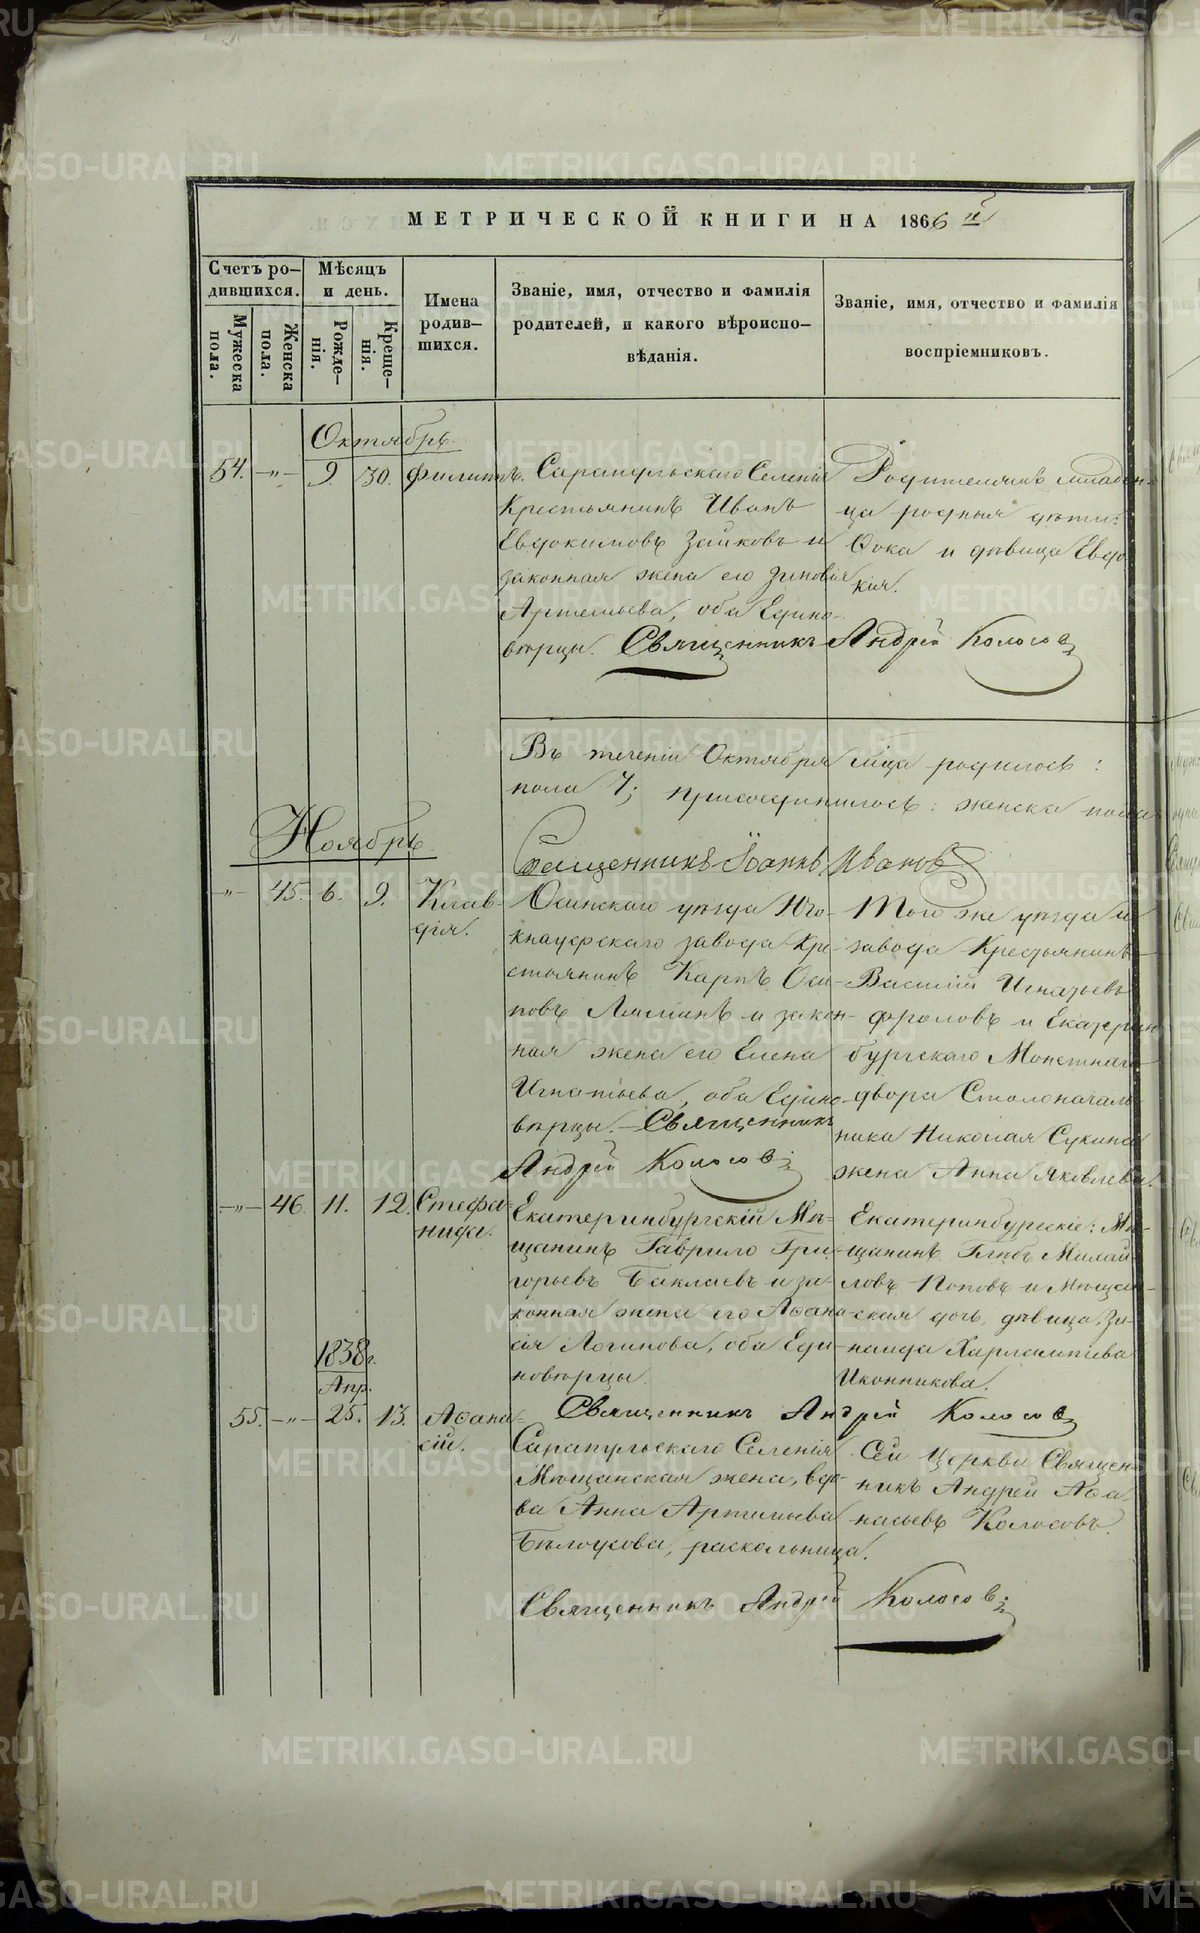 МЕТРИЧЕСКОЙ КНИГИ НА 1866 й
Счетъ ро-
дившихся.
Мѣсяцъ
и день.
Имена
родив-
шихся.
Званіе, имя, отчество и фамилія
родителей, и какого вѣроиспо-
вѣданія.
Званіе, имя, отчество и фамилія
воспріемниковъ.
Мужеска
пола.
Женска
пола.
Рожде-
нія.
Креще-
нія.
Октябрь.
54. -"- 9. 30. Филиппъ.
Сарапульскаго Селенія
Крестьянинъ Иванъ
Евдокимовъ Зайковъ и
законная жена его Зиновія
Артемьева, оба Едино-
вѣрцы. Священникъ Андрей Колосовъ
Родителямъ младен-
ца родныя дѣти:
Фока и дѣвица Евдо
кія.
Въ теченіи Октября м-ца родилось:
пола 7; присоединилось: женска пола
Священникъ Іоаннъ Ивановъ
Ноябрь.
-"- 45. 6. 9. Клав-
дія.
Осинскаго уѣзда Юго-
кнауфскаго завода Кре-
стьянинъ Карпъ Оси-
повъ Ляминъ и закон-
ная жена его Елена
Игнатьева, оба Едино-
вѣрцы. Священникъ
Андрей Колосовъ
Того же уѣзда и
завода Крестьянинъ
Василій Игнатьевъ
Фроловъ и Екатерин
бургскаго Монетнаго
двора Столоначаль
ника Николая Сукина
жена Анна Яковлева.
-"- 46. 11. 12. Стефа-
нида.
Екатеринбургскій Мѣ-
щанинъ Гаврило Гри-
горьевъ Баклаевъ и за-
конная жена его Аѳана
сія Логинова, оба Еди-
новѣрцы.
Екатеринбургскіе: Мѣ-
щанинъ Глѣбъ Михай-
ловъ Поповъ и Мѣщан-
ская дочь, дѣвица, Зи-
наида Харлампіева
Иконникова.
Священникъ Андрей Колосовъ
1838 г.
Апр.
55. -"- 25. 13. Аѳана-
сій.
Сарапульскаго Селенія
Мѣщанская жена, вдо-
ва Анна Артемьева
Бѣлоусова, раскольница.
Сей Церкви Священ-
никъ Андрей Аѳа-
насьевъ Колосовъ.
Священникъ Андрей Колосовъ
METRIKI.GASO-URAL.RU